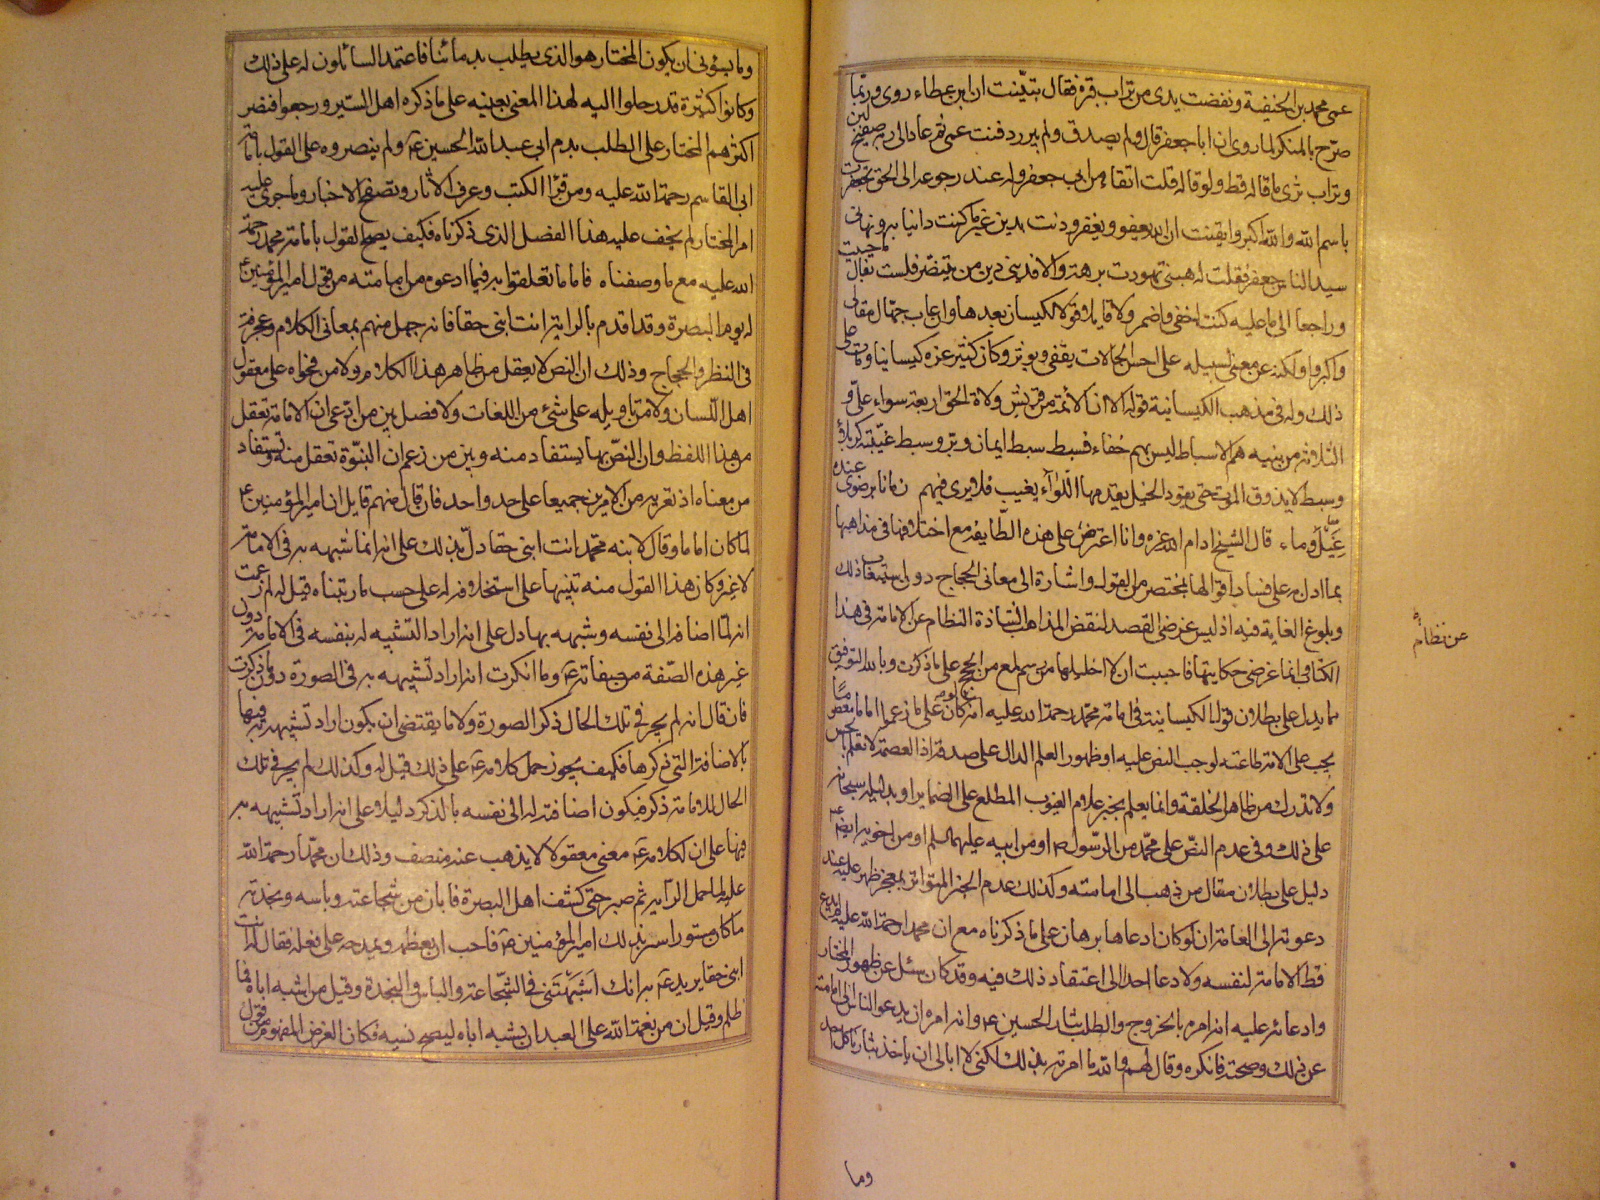 عمى محمد بن الحنفية ونفضت يدى من تراب قبره فقال بتبينت ان ابن عطاء روى وربما
صرح بالمنكر لما روى ان ابا جعفر قال ولم يصدق ولم يبرر دفنت عمى ثم عاد الى ربه صفيح لبن
وتراب ثرى ما قاله قط ولو قاله قلت اتقاء من ابى جعفر وله عند رجوعه الى الحق تجعفرت
باسم الله والله اكبر وايقنت ان الله يعفو ويغفر ودنت بدين غير ما كنت دانيا به ونهانى
سيد الناس جعفر فقلت له هبنى تهودت برهة والا فدينى دين من يتنصر فلست بغال ما حييت
وراجعا الى ما عليه كنت اخفى واضمر ولا قايلا قولا لكيسان بعدها وان عاب جهال مقالى
واكبروا ولكنه عن معنى لسبيله على احسن الحالات يقفى ويوثر وكان كثير عزه كيسانيا ومات على
ذلك وله فى مذهب الكيسانية قوله الا ان الائمة من قريش ولاة الحق اربعة سواء على و
الثلاثة من بنيه هم الاسباط ليس بهم خفاء فسبط سبط ايمان وبر وسبط غيبته كربلاؤ
وسبط لايذوق الموت حتى يقود الخيل يقدمها اللواء يغيب فلا يرى فيهم زمانا برضوى عنده
عسل وماء قال الشيخ ادام الله عزه وانا اعترض على هذه الطايفه مع اختلافها فى مذاهبها
بما ادل به على فساد اقوالها بمختصر من القول واشارة الى معانى الحجاج دون استيعاب ذلك
وبلوغ الغاية فيه اذ ليس غرضى القصد لنقض المذاهب الشاذة النظام عن الامامة فى هذا
الكتاب وانما غرضى حكايتها فاحببت ان لا اخليها من رسم لمع من الحجج على ما ذكرت وبالله التوفيق
مما يدل على بطلان قول الكيسانية فى امامة محمد رحمة الله عليه انه لو كان على ما زعموا اماما معصوما
يجب على الامة طاعته لوجب النص عليه او ظهور العلم الدال على صدقه اذ العصمة لا تعلم بالحس
ولا تدرك من ظاهر الخلقة وانما يعلم بخبر علام الغيوب المطلع على الضماير او بدليله سبحانه
على ذلك وفى عدم النص على محمد من الرسول ص او من ابيه عليهما السلم او من اخويه ايضا ع
دليل على بطلان مقال من ذهب الى امامته وكذلك عدم الخبر المتواتر بمعجز ظهر عليه عند
دعوته الى العامة ان لو كان ادعاها برهان على ما ذكرناه مع ان محمدا رحمة الله عليه لم يدع
قط الامامة لنفسه ولا دعا احدا الى اعتقاد ذلك فيه وقد كان سئل عن ظهور المختار
وادعائه عليه انه امره بالخروج والطلب بثار الحسين ع وانه امره ان يدعو الناس الى امامته
عن ذلك وصحته فانكره وقال لهم والله ما امرته بذلك لكنى لا ابالى ان ياخذ بثارنا كل احد
وما
عن نظام
وما يسوئنى ان يكون المختار هو الذى يطلب بدمائنا فاعتمد السائلون له على ذلك
وكانوا كثيرة قد رحلوا اليه لهذا المعنى بعينه على ما ذكره اهل السير ورجعوا فنصر
اكثرهم المختار على الطلب بدم ابى عبد الله الحسين ع ولم ينصروه على القول بامامة
ابى القاسم رحمة الله عليه ومن قرا الكتب وعرف الاثار وتصفح الاخبار وما جرى عليه
امر المختار لم يخف عليه هذا الفصل الذى ذكرناه فكيف يصح القول بامامة محمد رحمة
الله عليه مع ما وصفناه فاما ما تعلقوا به فيما ادعوه من امامته من قول امير المؤمنين ع
له يوم البصرة وقد اقدم بالراية انت ابنى حقا فانه جهل منهم بمعانى الكلام وعجرفة
فى النظر والحجاج وذلك ان النص لا يعقل من ظاهر هذا الكلام ولا من فحواه على معقول
اهل اللسان ولا من تاويله على شئ من اللغات ولا فصل بين من ادعى ان الامامة تعقل
من هذا اللفظ وان النص بها يستفاد منه وبين من زعم ان النبوة تعقل منه وتستفاد
من معناه اذ تعريه من الامرين جميعا على حد واحد فان قال منهم قايل ان امير المؤمنين ع
لما كان اماما وقال لابنه محمد انت ابنى حقا دل بذلك على انه انما شبهه به فى الامامة
لا غير وكان هذا القول منه تنبيها على استخلافه له على حسب ما رتبناه قيل له لم زعمت
انه لما اضافه الى نفسه وشبهه بها دل على انه اراد التشبيه له بنفسه فى الامامة دون
غير هذه الصفة من صفاته ع وما انكرت انه اراد تشبيهه به فى الصورة دون ما ذكرت
فان قال انه لم يجر فى تلك الحال ذكر الصورة ولا ما يقتضى ان يكون اراد تشبيهه به فيها
بالاضافة التى ذكرها فكيف يجوز حمل كلامه ع على ذلك قيل له وكذلك لم يجر فى تلك
الحال للامامة ذكر فيكون اضافته له الى نفسه بالذكر دليلا على انه اراد تشبيهه به
فيها على ان لكلامه ع معنى معقولا لا يذهب عنه منصف وذلك ان محمدا رحمة الله
عليه لما حمل الراية ثم صبر حتى كشف اهل البصرة فابان من شجاعته وباسه ونجدته
ما كان مستورا سر بذلك امير المؤمنين ع فاحب ان يعظمه ويمدحه على فعله فقال له انت
ابنى حقا يريد ع به انك اشبهتنى فى الشجاعة والباس والنجدة وقيل من اشبه اباه فما
ظلم وقيل ان من نعمة الله على العبد ان يشبه اباه ليصح نسبه فكان الغرض المفهوم من قول